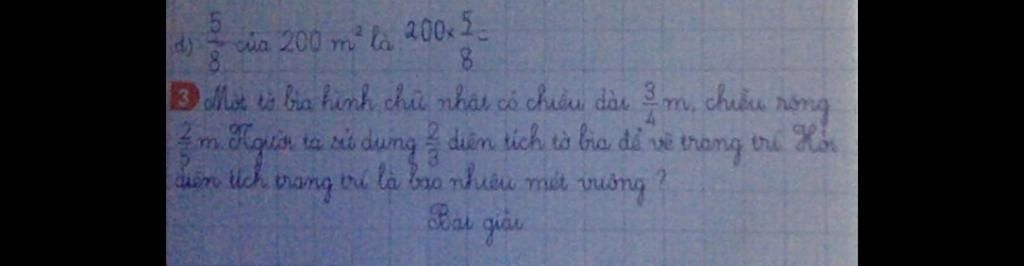 d) 5/8 của 200 m² là 200 × 5/8 =
3 Một tờ bìa hình chữ nhật có chiều dài 3/4 m, chiều rộng
2/5 m Người ta sử dụng 2/3 diện tích tờ bìa để vẽ trang trí Hỏi
diện tích trang trí là bao nhiêu mét vuông ?
Bài giải